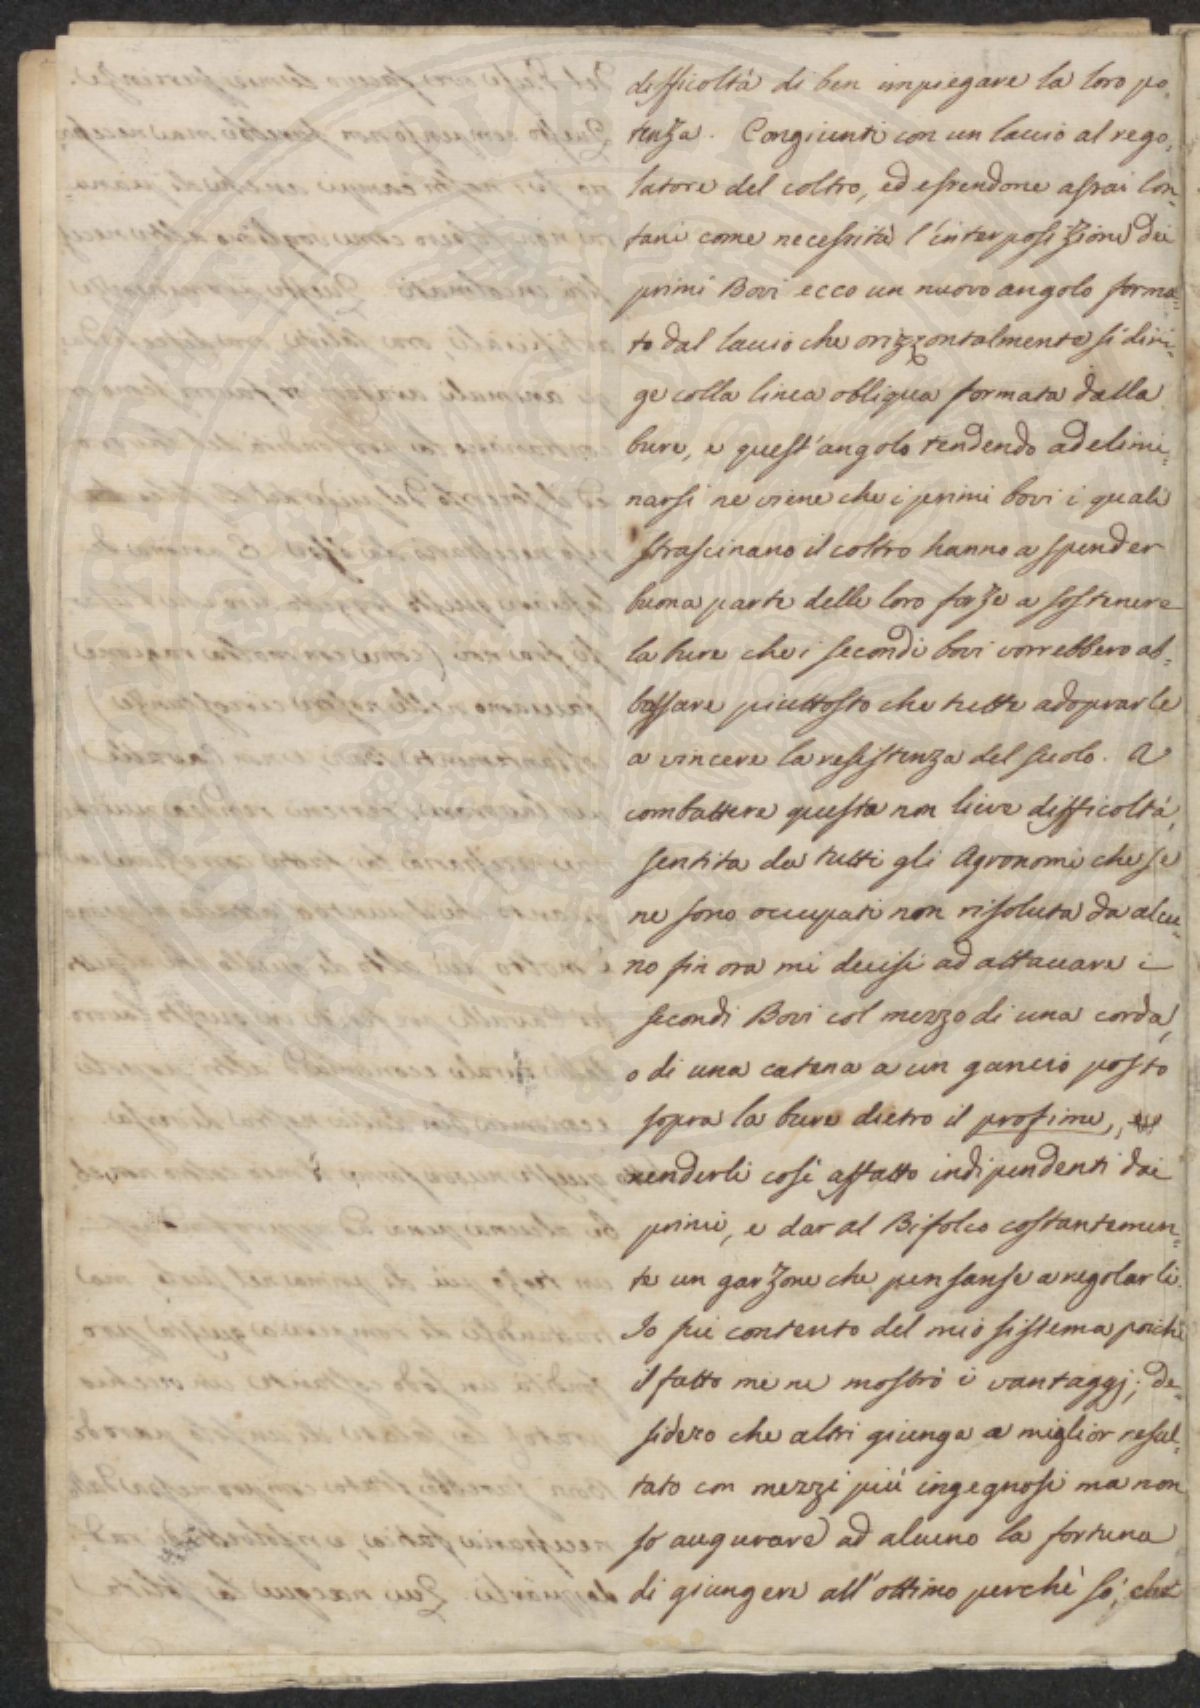 difficoltà di ben impiegare la loro po-
tenza. Congiunti con un laccio al rego-
latore del coltro, ed essendone assai lon-
tani come necessità l'interposizione dei
primi Bovi ecco un nuovo angolo forma-
to dal laccio che orizzontalmente si diri-
ge colla linea obliqua formata dalla
bure, e quest'angolo tendendo ad elimi-
narsi ne viene che i primi bovi i quali
strascinano il coltro hanno a spender
buona parte delle loro forze a sostenere
la bure che i secondi bovi vorrebbero ab-
bassare piuttosto che tutte adoprarle
a vincere la resistenza del suolo. A
combattere questa non lieve difficoltà,
sentita da tutti gli Agronomi che se
ne sono occupati non risoluta da alcu-
no fin ora mi decisi ad attaccare i
secondi Bovi col mezzo di una corda,
o di una catena a un gancio posto
sopra la bure dietro il profime,
renderli così affatto indipendenti dai
primi, e dar al Bifolco costantemen-
te un garzone che pensasse a regolarli.
Io fui contento del mio sistema poichè
il fatto me ne mostrò i vantaggj; de-
sidero che altri giunga a miglior resul-
tato con mezzi più ingegnosi ma non
so augurare ad alcuno la fortuna
di giungere all'ottimo perchè so, che